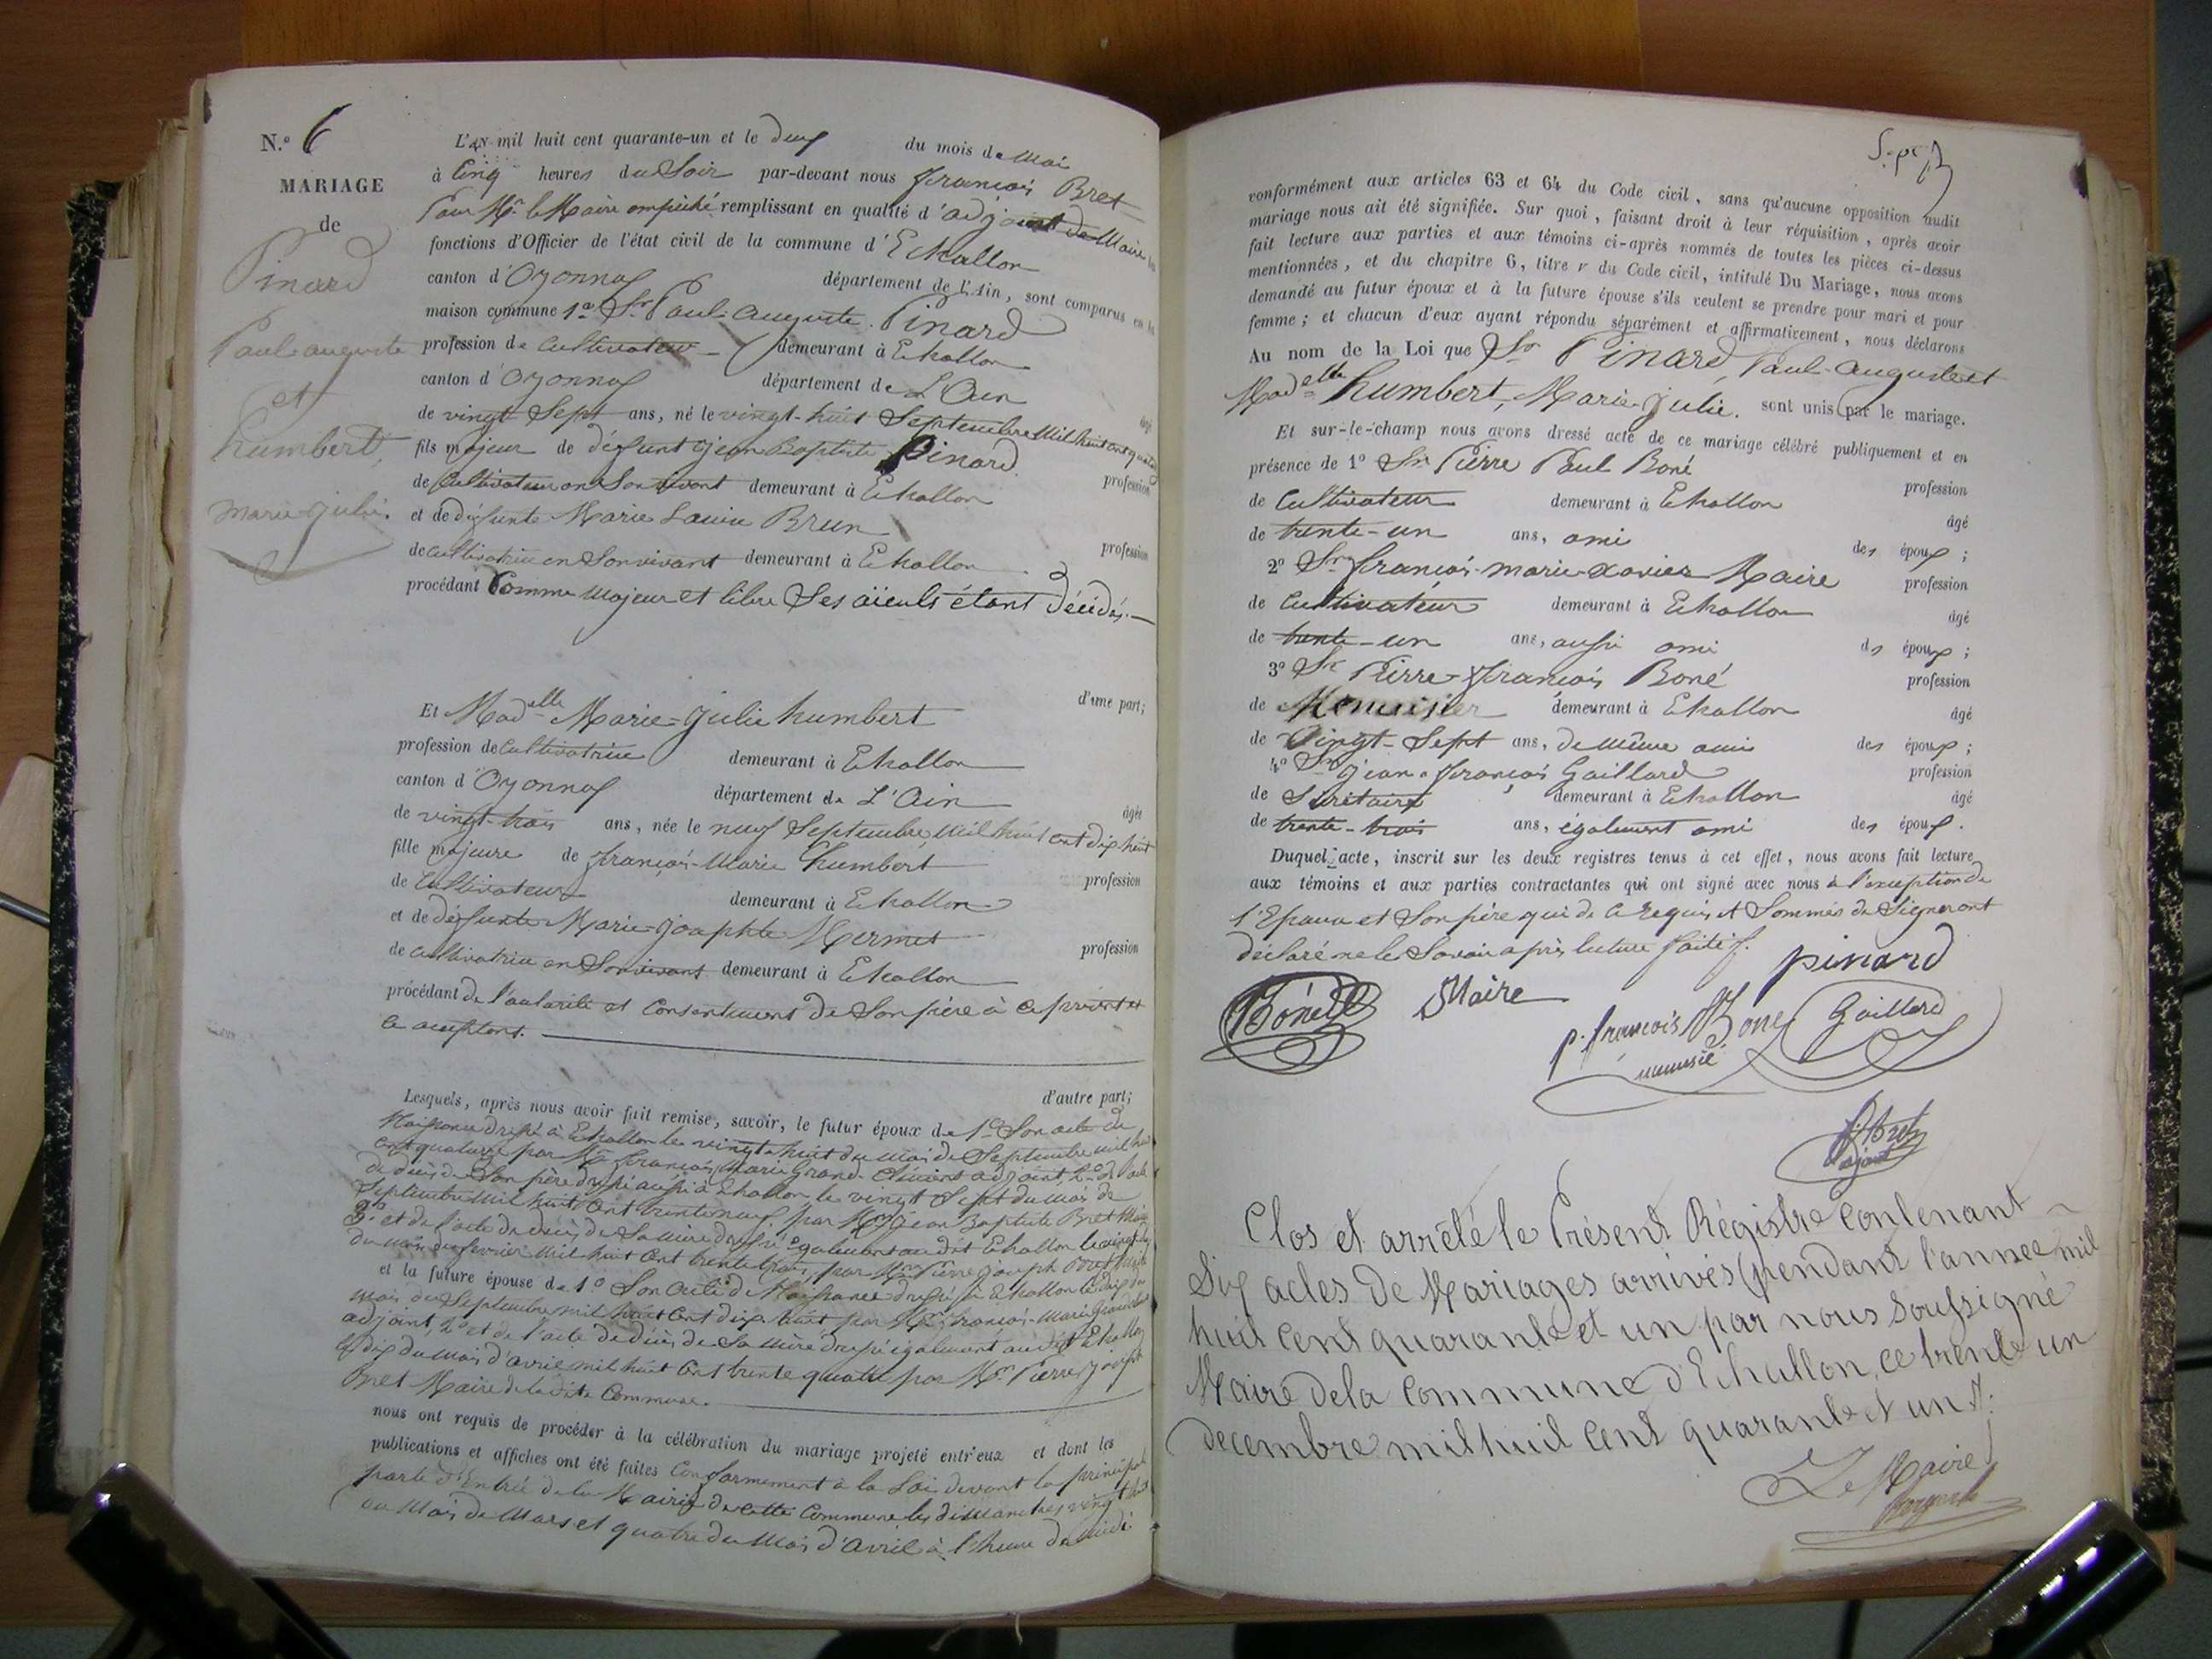 N.° 6
MARIAGE
de
Pinard
Paul auguste
et
humbert,
marie-julie.
L'an mil huit cent quarante-un et le deux du mois de Mai
à Cinq heures du Soir par-devant nous françois Bret
Pour Mr. le Maire empêché remplissant en qualité d'adjoint de Maire les
fonctions d'Officier de l'état civil de la commune d'Echallon
canton d'Oyonnax département de l'Ain, sont comparus en la
maison commune 1° Sr. Paul-auguste Pinard
profession de Cultivateur demeurant à Echallon
canton d'Oyonnax département de L'Ain âgé
de vingt Sept ans, né le vingt-huit Septembre Mil huit cent quatorze
fils majeur de défunt Jean Baptiste Pinard profession
de Cultivateur en Son vivant demeurant à Echallon
et de défunte Marie Louise Brun profession
de cultivatrice en Son vivant demeurant à Echallon
procédant Comme Majeur et libre Ses aïeuls étant décédés.
d'une part;
Et Madelle Marie-julie humbert
profession de Cultivatrice demeurant à Echallon
canton d'Oyonnax département de L'Ain âgée
de vingt-trois ans, née le neuf Septembre, Mil huit cent dix huit
fille majeure de françois-Marie humbert profession
de Cultivateur demeurant à Echallon
et de défunte Marie-josephte Mermet profession
de cultivatrice en Son vivant demeurant à Echallon
procédant de l'autorité et Consentement de Son père à ce présent et
ce acceptant.
d'autre part;
Lesquels, après nous avoir fait remise, savoir, le futur époux de 1° Son acte de
Naissance dressé à Echallon le vingt huit du mois de Septembre mil huit
cent quatorze par Mr. François Marie Grand-Clément adjoint, 2° de l'acte
de décès de Son père dressé aussi à Echallon le vingt Sept du Mois de
Septembre Mil huit Cent trente neuf par Mr. Jean Baptiste Bret Maire
3° et de l'acte de décès de Sa mère dressé également au dit Echallon le
du mois de fevrier mil huit Cent trente trois, par Mr. Pierre joseph Bret Maire
et la future épouse de 1° Son acte de Naissance dressé à Echallon le dix du
mois de Septembre mil huit Cent dix huit par Mr. François-Marie Grand Clément
adjoint, 2° et de l'acte de décès de Sa Mère dressé également au dit Echallon
le dix du mois d'avril mil huit Cent trente quatre par Mr. Pierre joseph
Bret Maire de la dite Commune.
nous ont requis de procéder à la célébration du mariage projeté entr'eux et dont les
publications et affiches ont été faites Conformement à la Loi devant la principale
porte d'Entrée de la Mairie de cette Commune les dimanches vingt huit
du Mois de Mars et quatre du Mois d'Avril à l'heure de midi
conformément aux articles 63 et 64 du Code civil, sans qu'aucune opposition audit
mariage nous ait été signifiée. Sur quoi, faisant droit à leur réquisition, après avoir
fait lecture aux parties et aux témoins ci-après nommés de toutes les pièces ci-dessus
mentionnées, et du chapitre 6, titre v du Code civil, intitulé Du Mariage, nous avons
demandé au futur époux et à la future épouse s'ils veulent se prendre pour mari et pour
femme; et chacun d'eux ayant répondu séparément et affirmativement, nous déclarons
Au nom de la Loi que Sr Pinard, Paul-Auguste et
Madelle humbert, Marie-julie. sont unis par le mariage.
Et sur-le-champ nous avons dressé acte de ce mariage célébré publiquement et en
présence de 1° Sr. Pierre Paul Boné profession
de Cultivateur demeurant à Echallon âgé
de trente-un ans, ami des époux;
2° Sr. françois-marie-xavier Maire profession
de Cultivateur demeurant à Echallon âgé
de trente-un ans, aussi ami des époux;
3° Sr. Pierre-françois Boné profession
de Menuisier demeurant à Echallon âgé
de Vingt-Sept ans, de même ami des époux;
4° Sr. jean-françois Gaillard profession
de Sécrétaire demeurant à Echallon âgé
de trente-trois ans, également ami des époux.
Duquel acte, inscrit sur les deux registres tenus à cet effet, nous avons fait lecture
aux témoins et aux parties contractantes qui ont signé avec nous à l'exception de
l'Epouse et Son père qui de ce requis et Sommés de Signer ont
déclaré ne le Savoir après lecture faite.
pinard
Boné
Maire
p. françois Boné
menusié
Gaillard
f. Bret
adjoint
Clos et arrêté le Présent Régistre Contenant
Six actes de Mariages arrivés pendant l'année mil
huit Cent quarante et un par nous Soussigné
Maire de la Commune d'Echallon, ce trente un
decembre mil huit Cent quarante et un
Le Maire